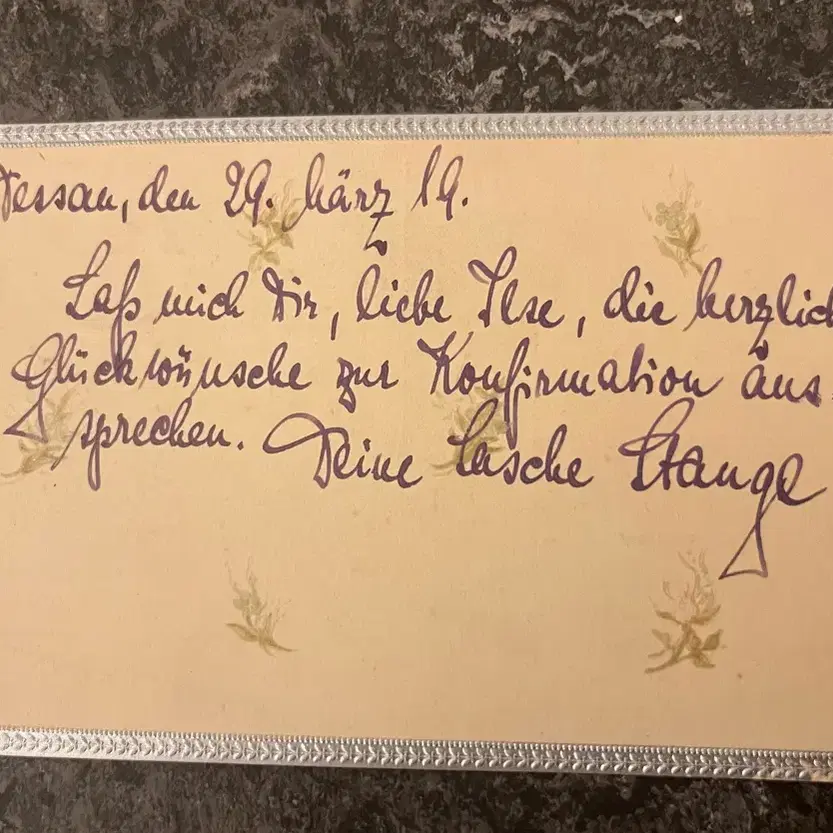 Dessau, den 29. März 19.
Laß mich Dir, liebe Ilse, die herzlich
Glückwünsche zur Konfirmation aus
sprechen. Deine Stange